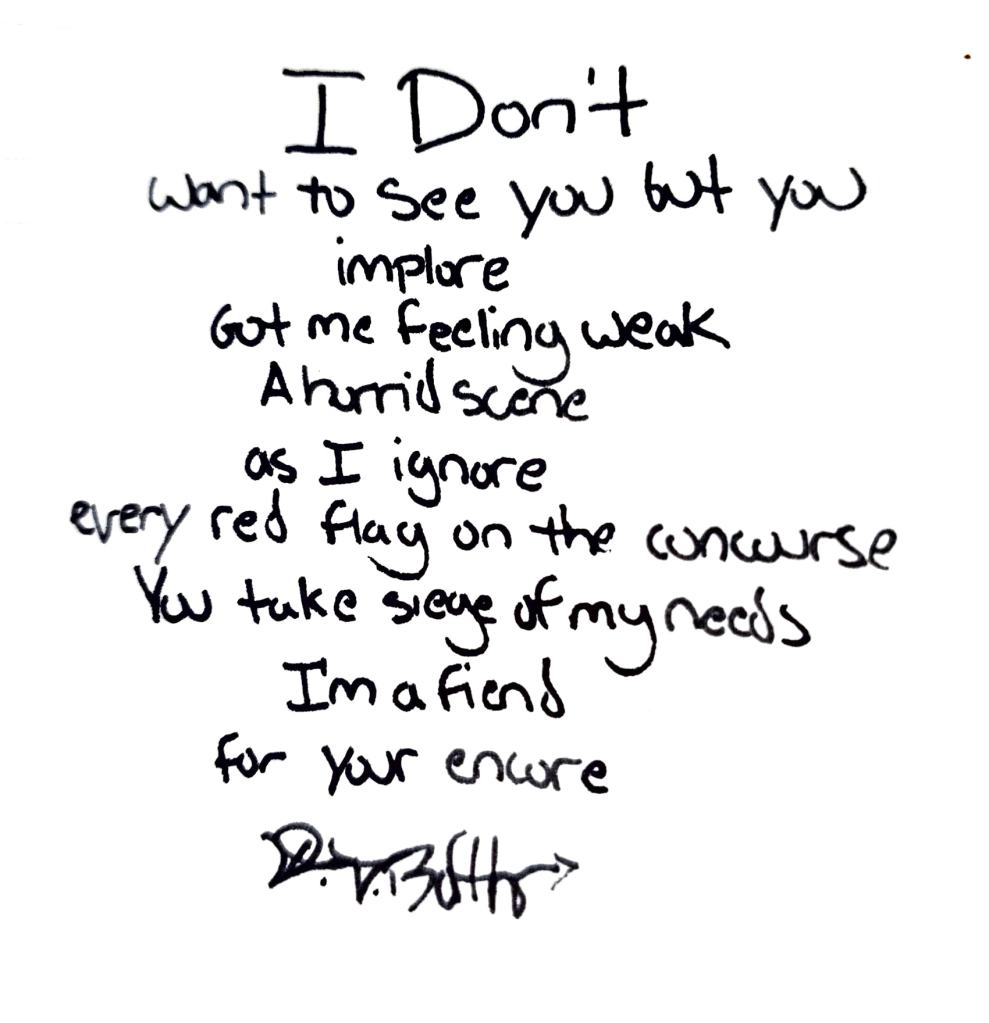 I Don't
want to see you but you
implore
Got me feeling weak
A horrid scene
as I ignore
every red flag on the concourse
You take siege of my needs
I'm a fiend
for your encore